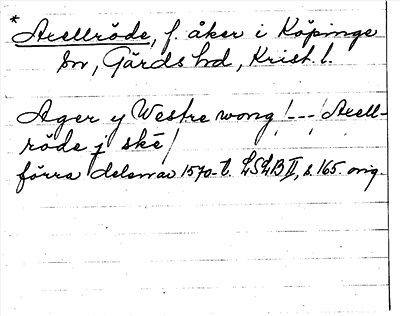 * Axellröde, f. åker i Köpinge
sn, Gärds hd, Krist. l.
Ager y Westre wong /---/ Axell-
röde j ske /
förra delen av 1570-t. LSLB II, s. 165. orig.